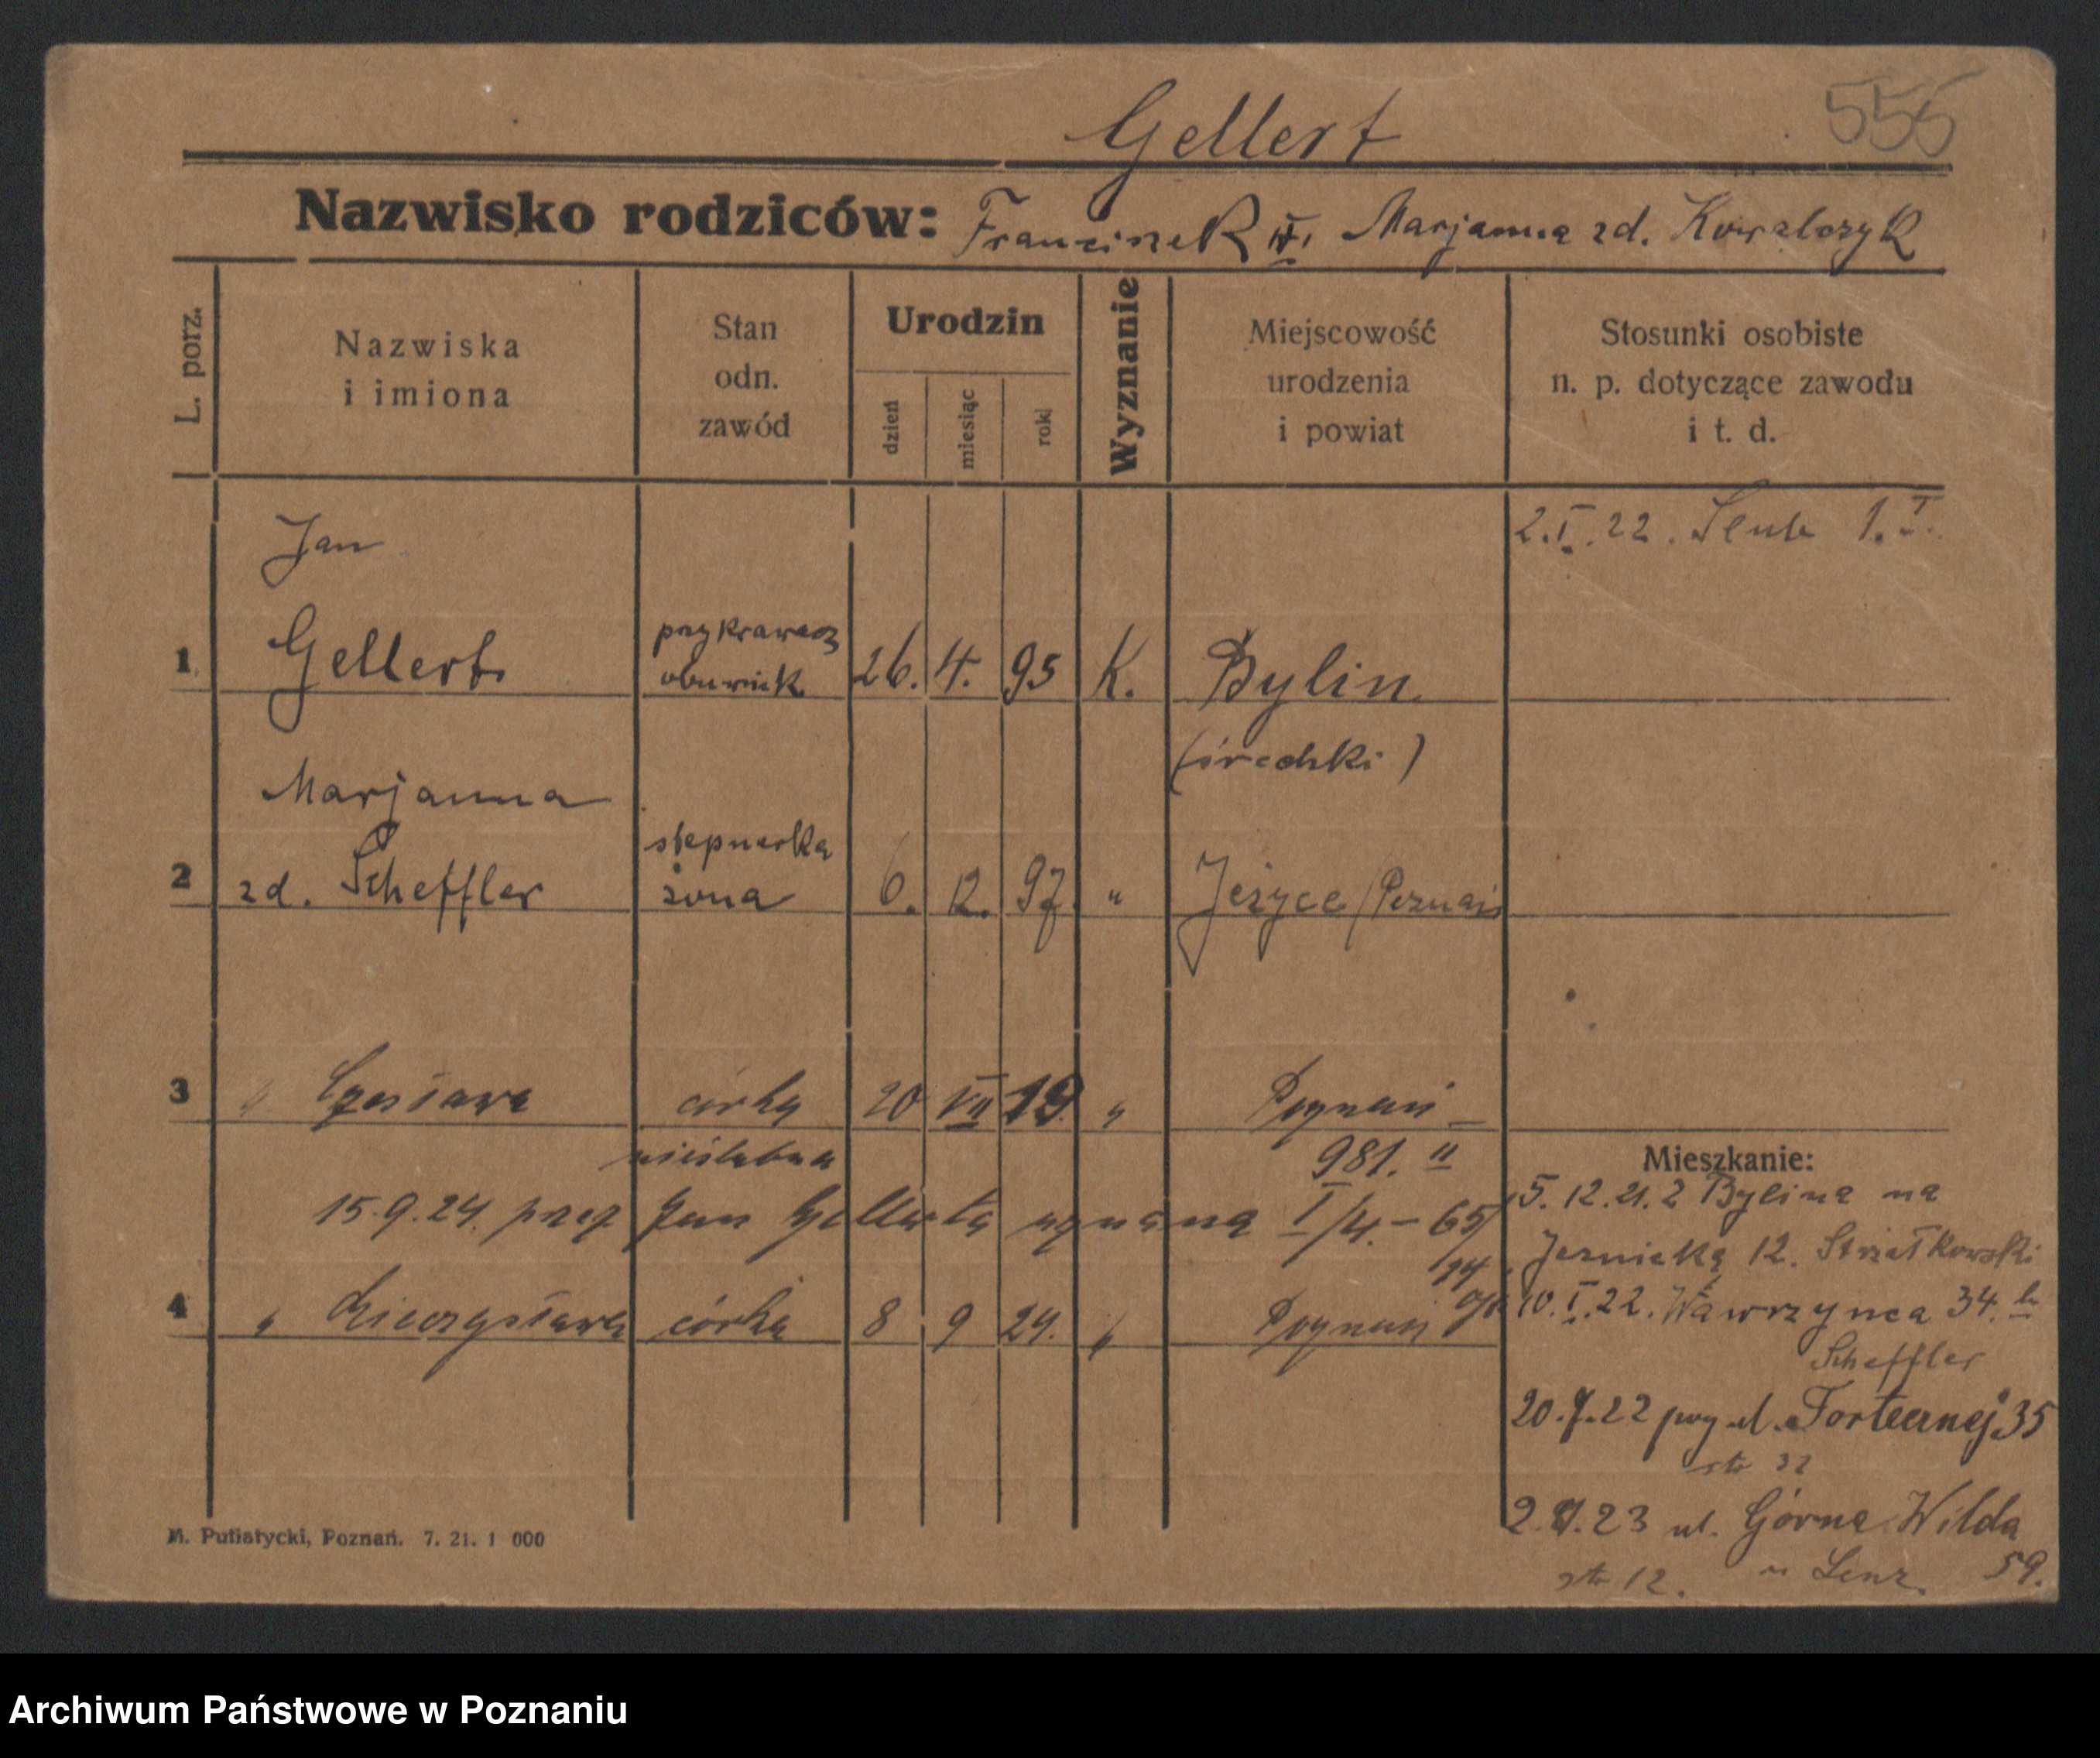 Gellert 555
Nazwisko rodziców: Franciszek Marjanna zd. Kowalczyk
L. porz.
Nazwiska
i imiona
Stan
odn.
zawód
Urodzin
dzień
miesiąc
rok
Wyznanie
Miejscowość
urodzenia
i powiat
Stosunki osobiste
n. p. dotyczące zawodu
i t. d.
2.I.22. Slub 1.I.
Jan
1 Gellert przykrawacz obuwnik 26. 4. 95 K. Bylin
(średzki)
Marjanna
2 zd. Scheffler stepnerka żona 6. 12. 97. " Jeżyce / Poznań
3 " Czesława córka 20 VII 19 " Poznań
nieślubna 981. II
15.9.24. przez Jan Gellerta uznana I/4. - 65/
4 " Mieczysława córka 8 9 24. " Poznań
Mieszkanie:
5. 12.21. z Bylina na
12. Strzałkowski
10.I.22. Wawrzynca 34.
Scheffler
20.7.22 przy ul. Fortecznej 35
str 32
23 ul. Górna Wilda
59.
str 12. u Lenz.
M. Putiatycki, Poznań. 7. 21. 1 000
Archiwum Państwowe w Poznaniu